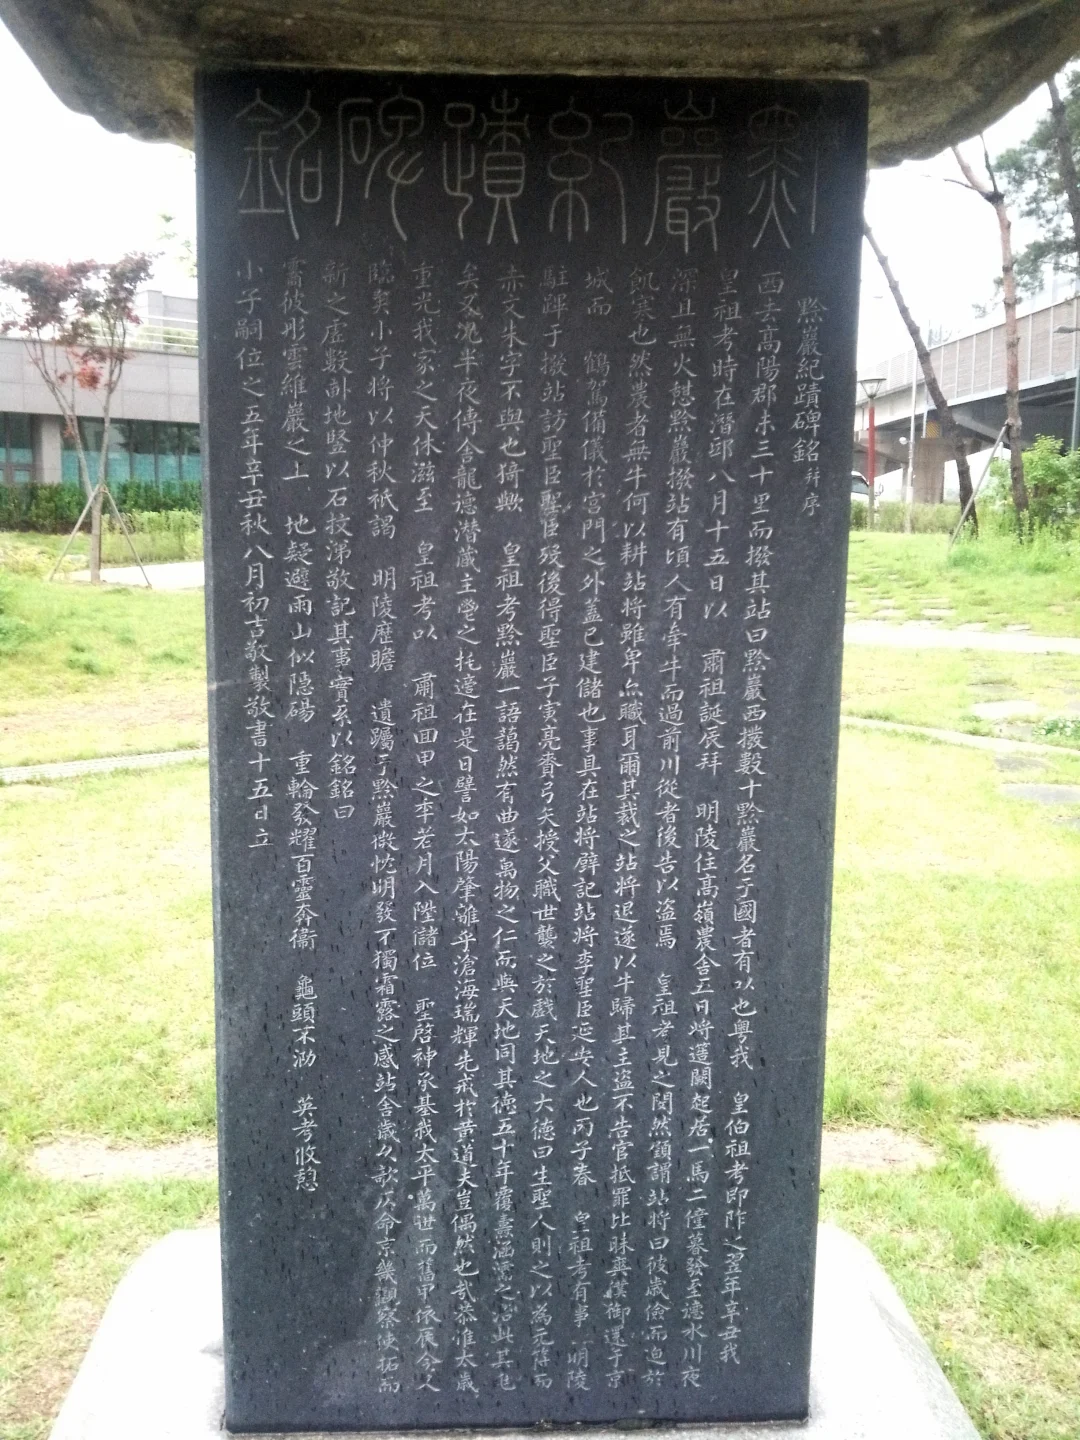 黔巖紀蹟碑銘
黔巖紀蹟碑銘 幷序
西去高陽郡未三十里而撥其站曰黔巖西撥數十黔巖名于國者有以也粤我 皇伯祖考即阼之翌年辛丑我
皇祖考時在潛邸八月十五日以 肅祖誕辰拜 明陵住高嶺農舍五日將邁闕起居一馬二僮暮發至德水川夜
深且無火憇黔巖撥站有頃人有牽牛而過前川從者後告以盜焉 皇祖考見之閔然顧謂站將曰彼歲儉而迫於
飢寒也然農者無牛何以耕站將雖卑亦職耳爾其裁之站將退遂以牛歸其主盜不告官抵罪比昧爽僕御還于京
城而 鶴駕備儀於宮門之外蓋已建儲也事具在站將廨記站將李聖臣延安人也丙子春 皇祖考有事 明陵
駐蹕于撥站訪聖臣聖臣歿後得聖臣子寅亮賚弓矢授父職世襲之於戲天地之大德曰生聖人則之以為元符而
赤文朱字不與也猗歟 皇祖考黔巖一語藹然有曲遂萬物之仁而與天地同其德五十年覆燾涵濡之治此其兆
矣又况半夜傳舍龍德潛藏主鬯之托適在是日譬如太陽肇離乎滄海瑞輝先戒於黃道夫豈偶然也哉恭惟太歲
重光我家之天休滋至 皇祖考以 肅祖回甲之年若月入陞儲位 聖啓神承基我太平萬世而舊甲依辰今又
臨矣小子將以仲秋祇謁 明陵歷瞻 遺躅于黔巖僾忱明發不獨霜露之感站舍歲久歌仄命京畿觀察使拓而
新之虛數畝地竪以石抆涕敬記其事實系以銘銘曰
靄彼彤雲維巖之上 地疑避雨山似隱碭 重輪發耀百靈奔衛 龜頭不泐 英考攸憇
小子嗣位之五年辛丑秋八月初吉敬製敬書十五日立